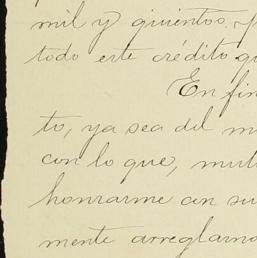 mil y quientos. p
todo este crédito qu
En fin
to, ya sea del m
con lo que, mult
honrarme con su
mente arreglarno